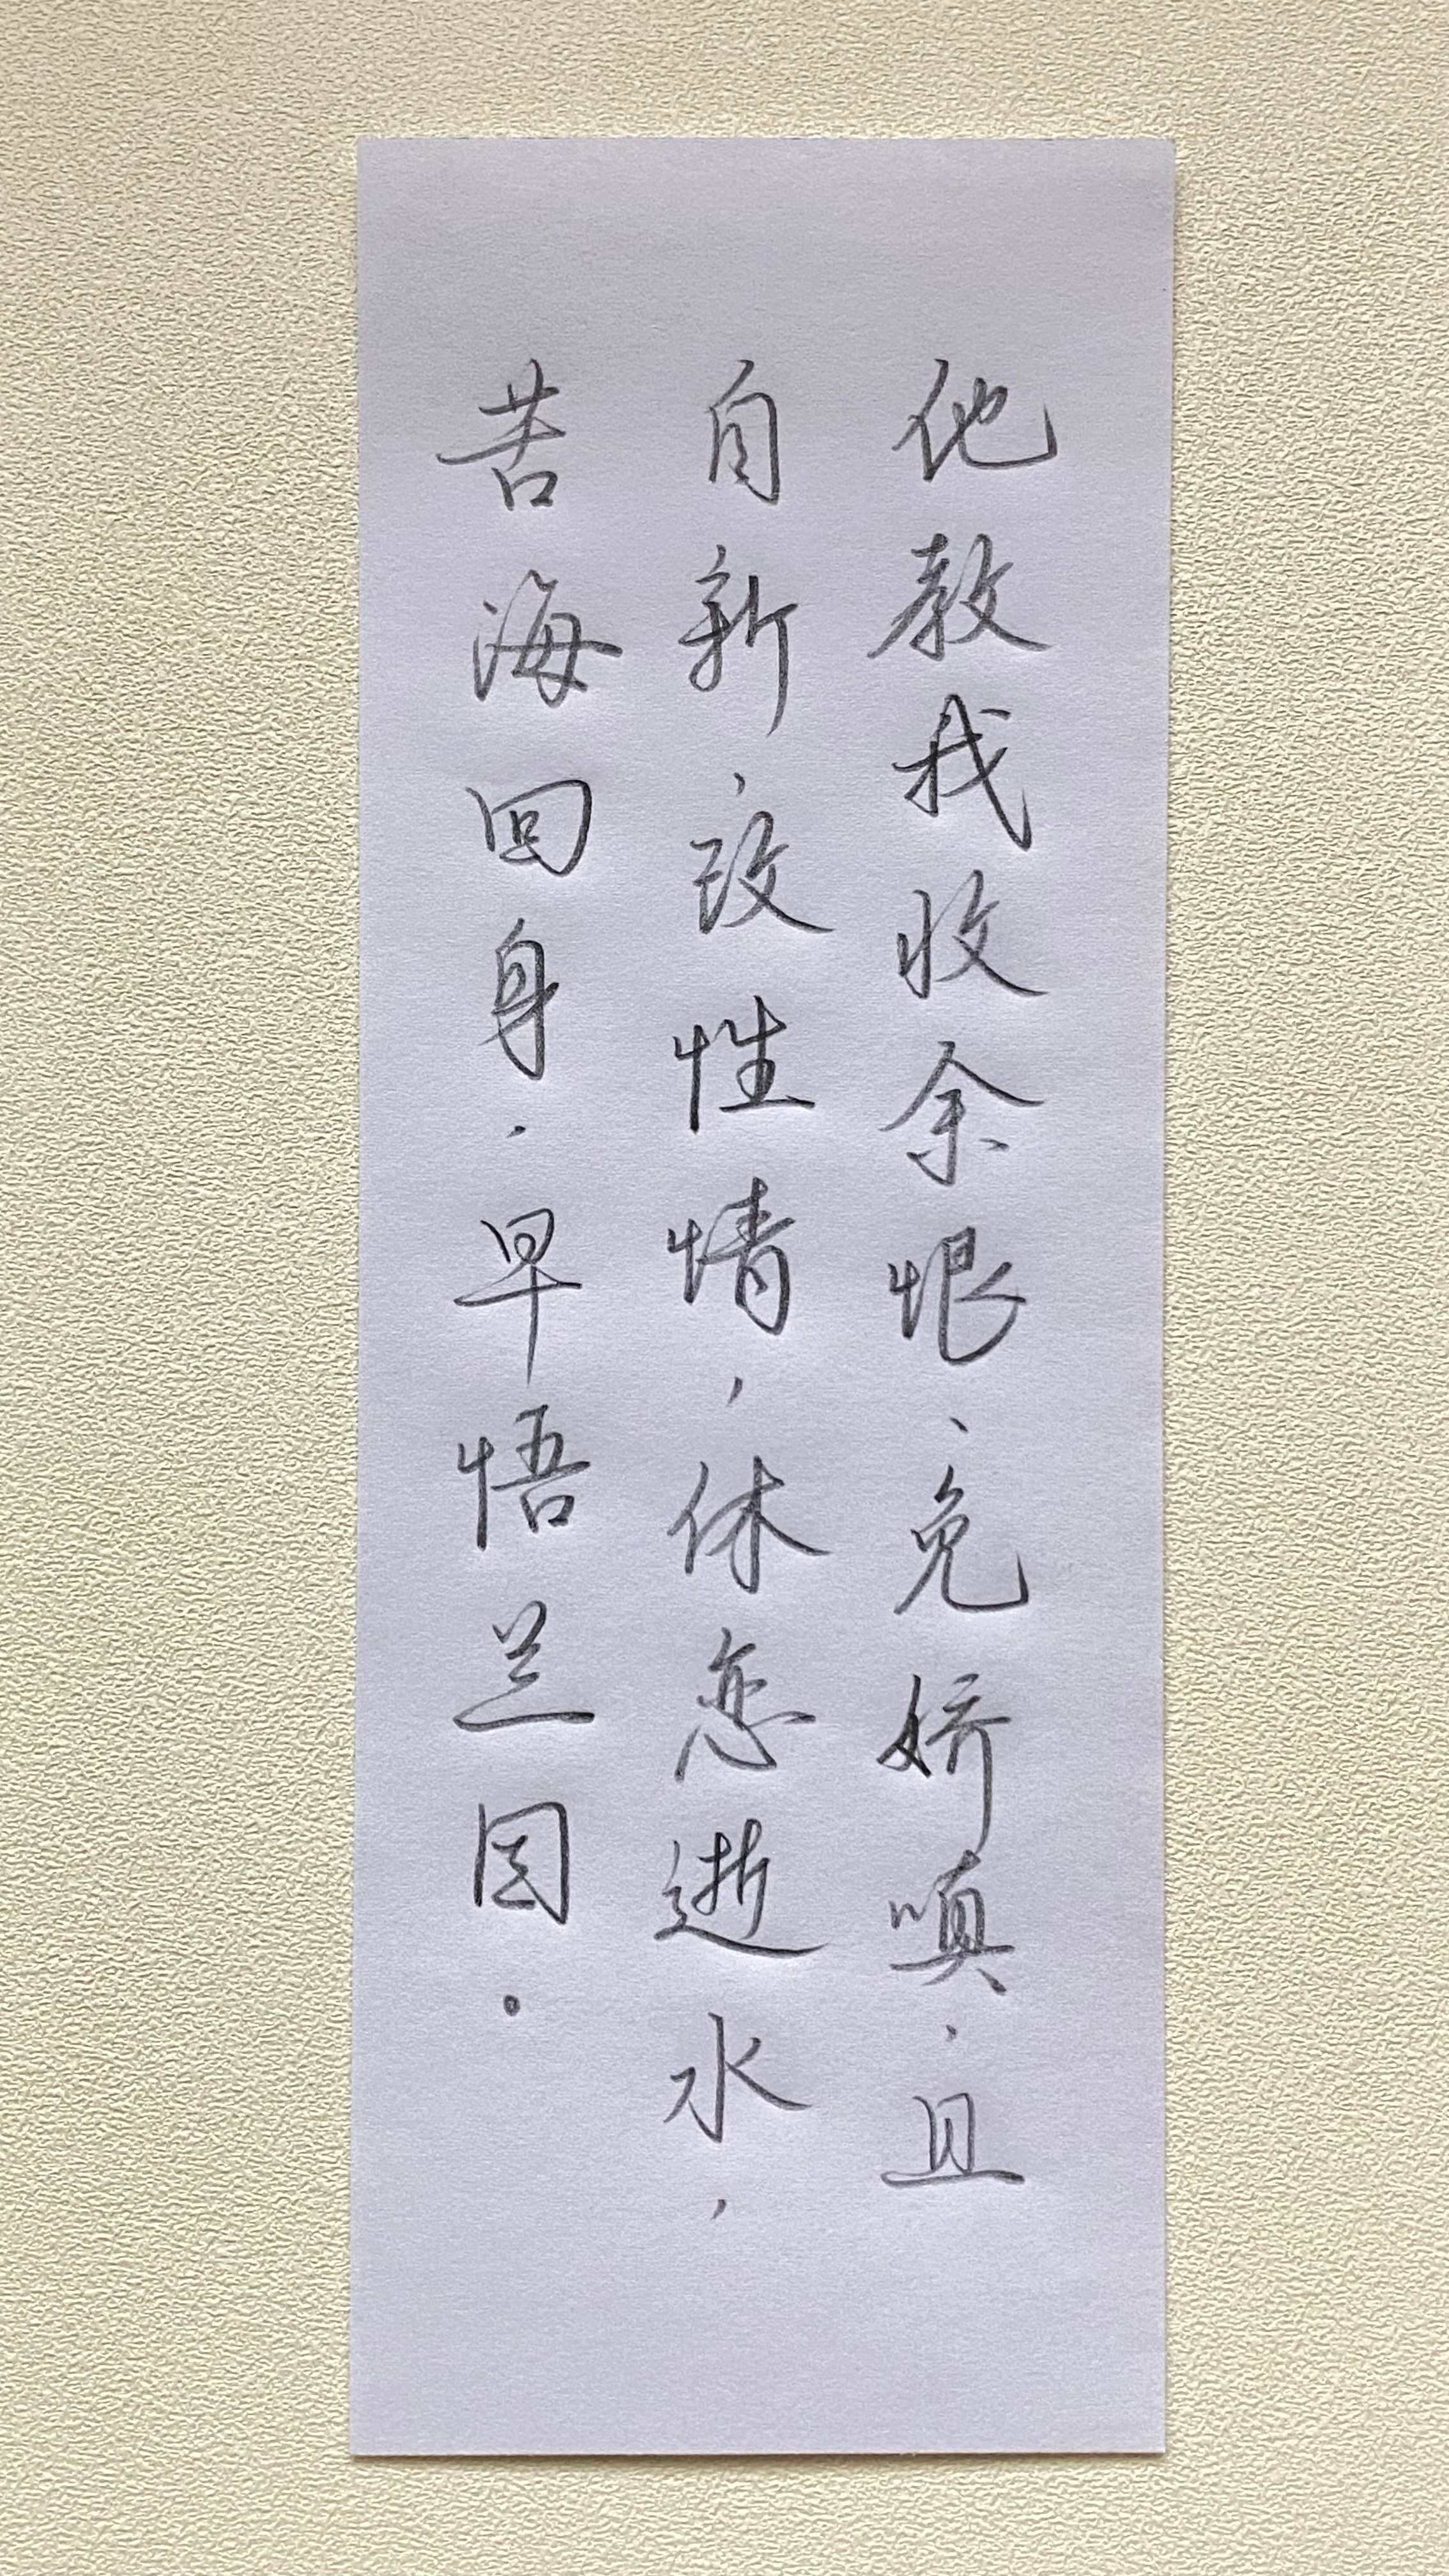 他教我收余恨、免娇嗔，且
自新，改性情，休恋逝水，
苦海回身，早悟兰因。